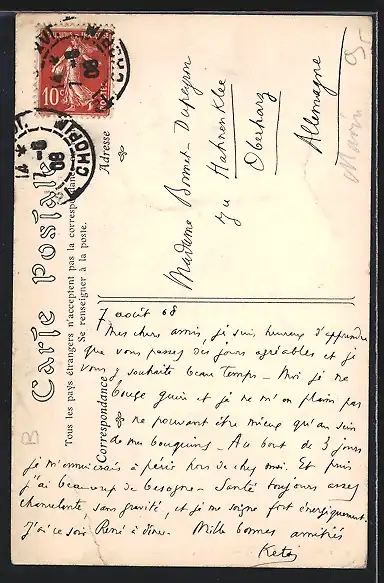 Carte Postale
Tous les pays étrangers n'acceptent pas la correspondance
Se renseigner à la poste.
Correspondance
Adresse
10c
POSTES
CHOPIN
08
Madame Bonnet-Dupeyron
zu Hahnenklee
Oberharz
Allemagne
7 août 08
Mes chers amis, je suis heureux d'apprendre
que vous passez des jours agréables et je
vous y souhaite beau temps – Moi je ne
bouge guère et je ne m'en plains pas
ne pouvant être mieux qu'au sein
de mes bouquins – Au bout de 3 jours
je m'ennuierais à périr hors de chez moi. Et puis
j'ai beaucoup de besogne – Santé toujours assez
chancelante, sans gravité, et je me soigne fort énergiquement.
J'ai ce soir René à dîner. Mille bonnes amitiés
B